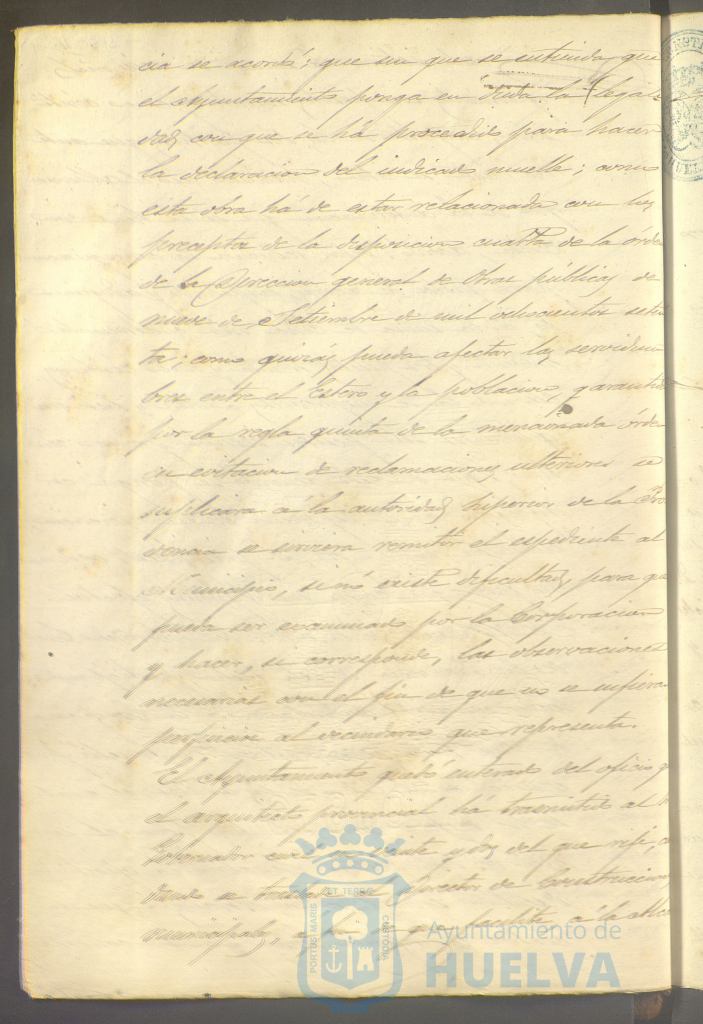 cia se acordó; que sin que se entienda que
el Ayuntamiento ponga en duda la legali
dad con que se há procedido para hacer
la declaracion del indicado muelle; como
esta obra há de estar relacionada con los
preceptos de la disposicion cuarta de la órden
de la Direccion general de Obras públicas de
nueve de Setiembre de mil ochocientos seten
ta; como quizás pueda afectar las servidum
bres entre el Estero y la poblacion, garantid
por la regla quinta de la mencionada órden
en evitacion de reclamaciones ulteriores se
suplicara á la autoridad superior de la Pro
vincia se sirviera remitir el espediente al
Municipio, si nó existe dificultad, para que
pueda ser examinado por la Corporacion
y hacer, si corresponde, las observaciones
necesarias con el fin de que no se infiera
perjuicio al vecindario que representa.
El Ayuntamiento quedó enterado del oficio q
el arquitecto provincial há trasmitido al
Gobernador en veinte y dos del que rije,
se al Director de Construcciones
municipales, á fin de que facilite á la
PORTUS MARIS ET TERRE CUSTODIA
Ayuntamiento de
HUELVA